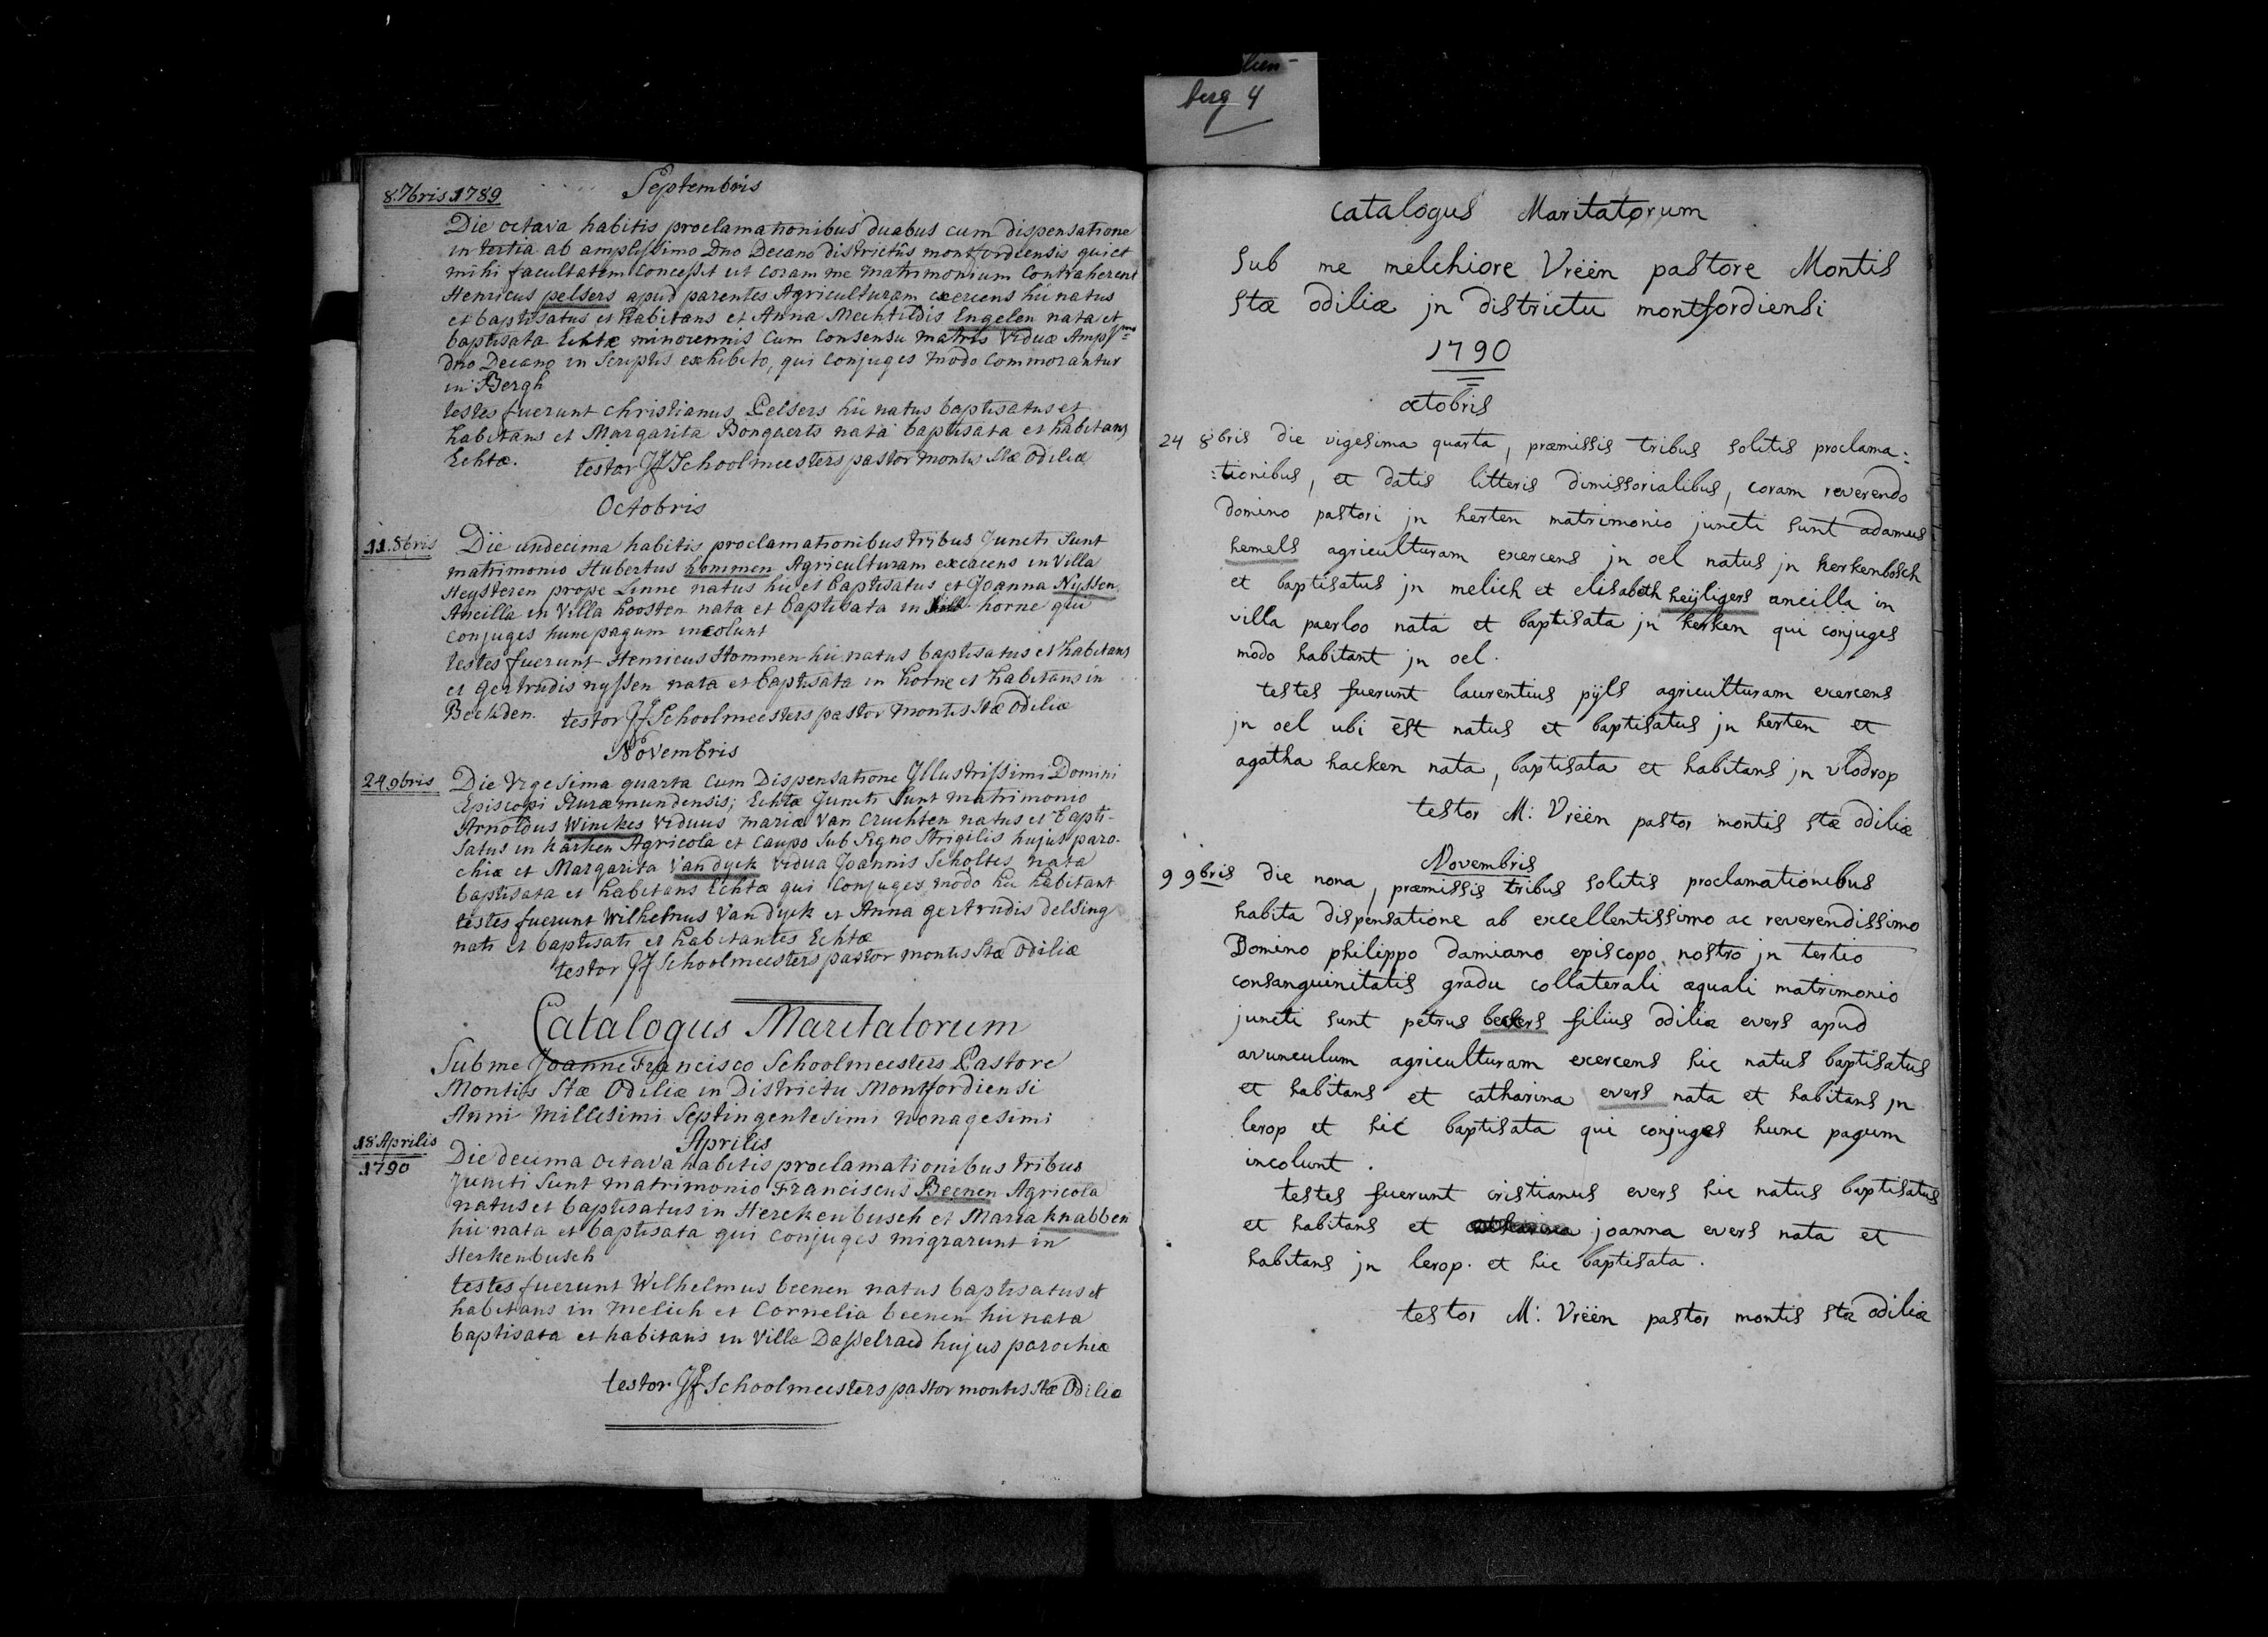 lien-
berg 4
Septembris
8. 7bris 1789
Die octava habitis proclamationibus duabus cum dispensatione
in tertia ab amplissimo Dno Decano districtûs montfordiensis qui et
mihi facultatem concessit ut coram me matrimonium contraherent
Henricus pelsers apud parentes Agriculturam exercens hic natus
et baptisatus et habitans et Anna Mechtildis Engelen nata et
baptisata Echtæ minorennis cum consensu matris viduæ Ampssmo
dno Decano in scriptis exhibito, qui conjuges modo commorantur
in Bergh
testes fuerunt christianus Pelsers hic natus baptisatus et
habitans et Margarita Bongaerts nata baptisata et habitans
Echtæ. testor JfSchoolmeesters pastor montis Stæ Odiliæ
Octobris
11. 8bris Die undecima habitis proclamationibus tribus Juncti Sunt
matrimonio Hubertus hommen Agriculturam exercens in Villa
Heysteren prope Linne natus hic et baptisatus et Joanna Nyssen
Ancilla in Villa hoosten nata et baptisata in horne qui
conjuges hunc pagum incolunt
testes fuerunt Henricus Hommen hic natus baptisatus et habitans
et Gertrudis nyssen nata et baptisata in horne et habitans in
Beckden. testor JfSchoolmeesters pastor montis Stæ Odiliæ
Novembris
24 9bris Die Vigesima quarta cum Dispensatione Illustrissimi Domini
Episcopi Ruræmundensis; Echtæ Juncti Sunt matrimonio
Arnoldus Winckes viduus mariæ Van Cruchten natus et bapti-
satus in karken Agricola et Caupo sub signo Strigilis hujus paro-
chiæ et Margarita Vandyck vidua Joannis Scholtes nata
baptisata et habitans Echtæ qui conjuges modo hic habitant
testes fuerunt Wilhelmus Vandyck et Anna gertrudis delsing
nati et baptisati et habitantes Echtæ
testor JfSchoolmeesters pastor montis Stæ Odiliæ
Catalogus Maritatorum
Sub me Joanne Francisco Schoolmeesters Pastore
Montis Stæ Odiliæ in Districtu Montfordiensi
Anni Millesimi Septingentesimi nonagesimi
Aprilis
18 Aprilis
1790
Die decima octava habitis proclamationibus tribus
Juncti Sunt matrimonio Franciscus Beenen Agricola
natus et baptisatus in Herckenbusch et Maria knabben
hic nata et baptisata qui conjuges migrarunt in
Herkenbusch
testes fuerunt Wilhelmus beenen natus baptisatus et
habitans in melich et Cornelia beenen hic nata
baptisata et habitans in Villa Dasselraed hujus parochiæ
testor JfSchoolmeesters pastor montis Stæ Odiliæ
catalogus Maritatorum
Sub me melchiore Vrëën pastore Montis
Stæ odiliæ jn districtu montfordiensi
1790
octobris
24 8bris die vigesima quarta, præmissis tribus solitis proclama:
:tionibus, et datis litteris dimissorialibus, coram reverendo
domino pastori jn herten matrimonio juncti sunt adamus
hemels agriculturam exercens jn oel natus jn herkenbosch
et baptisatus jn melich et elisabeth heijligers ancilla in
villa paerloo nata et baptisata jn kerken qui conjuges
modo habitant jn oel.
testes fuerunt laurentius pijls agriculturam exercens
jn oel ubi est natus et baptisatus jn herten et
agatha hacken nata, baptisata et habitans jn vlodrop
testor M: Vrëën pastor montis stæ odiliæ
Novembris
9 9bris die nona, præmissis tribus solitis proclamationibus
habita dispensatione ab excellentissimo ac reverendissimo
Domino philippo damiano episcopo nostro jn tertio
consanguinitatis gradu collaterali æquali matrimonio
juncti sunt petrus filius odiliæ evers apud
avunculum agriculturam exercens hic natus baptisatus
et habitans et catharina evers nata et habitans jn
lerop et hic baptisata qui conjuges hunc pagum
incolunt.
testes fuerunt cristianus evers hic natus baptisatus
et habitans et joanna evers nata et
habitans jn lerop. et hic baptisata.
testor M: Vrëën pastor montis stæ odiliæ